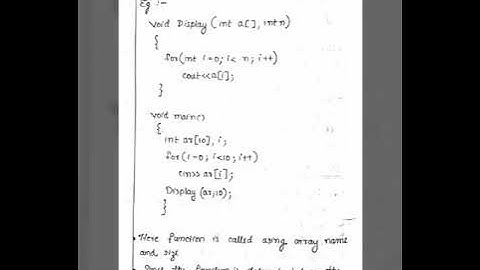 Eg :-
void Display (int a[], int n)
{
for(int i=0; i< n; i++)
cout<<a[i];
}
void main()
{
int ar[10], i;
for(i=0; i<10; i++)
cin>> ar[i];
Display (ar,10);
}
• Here function is called using array name
and size